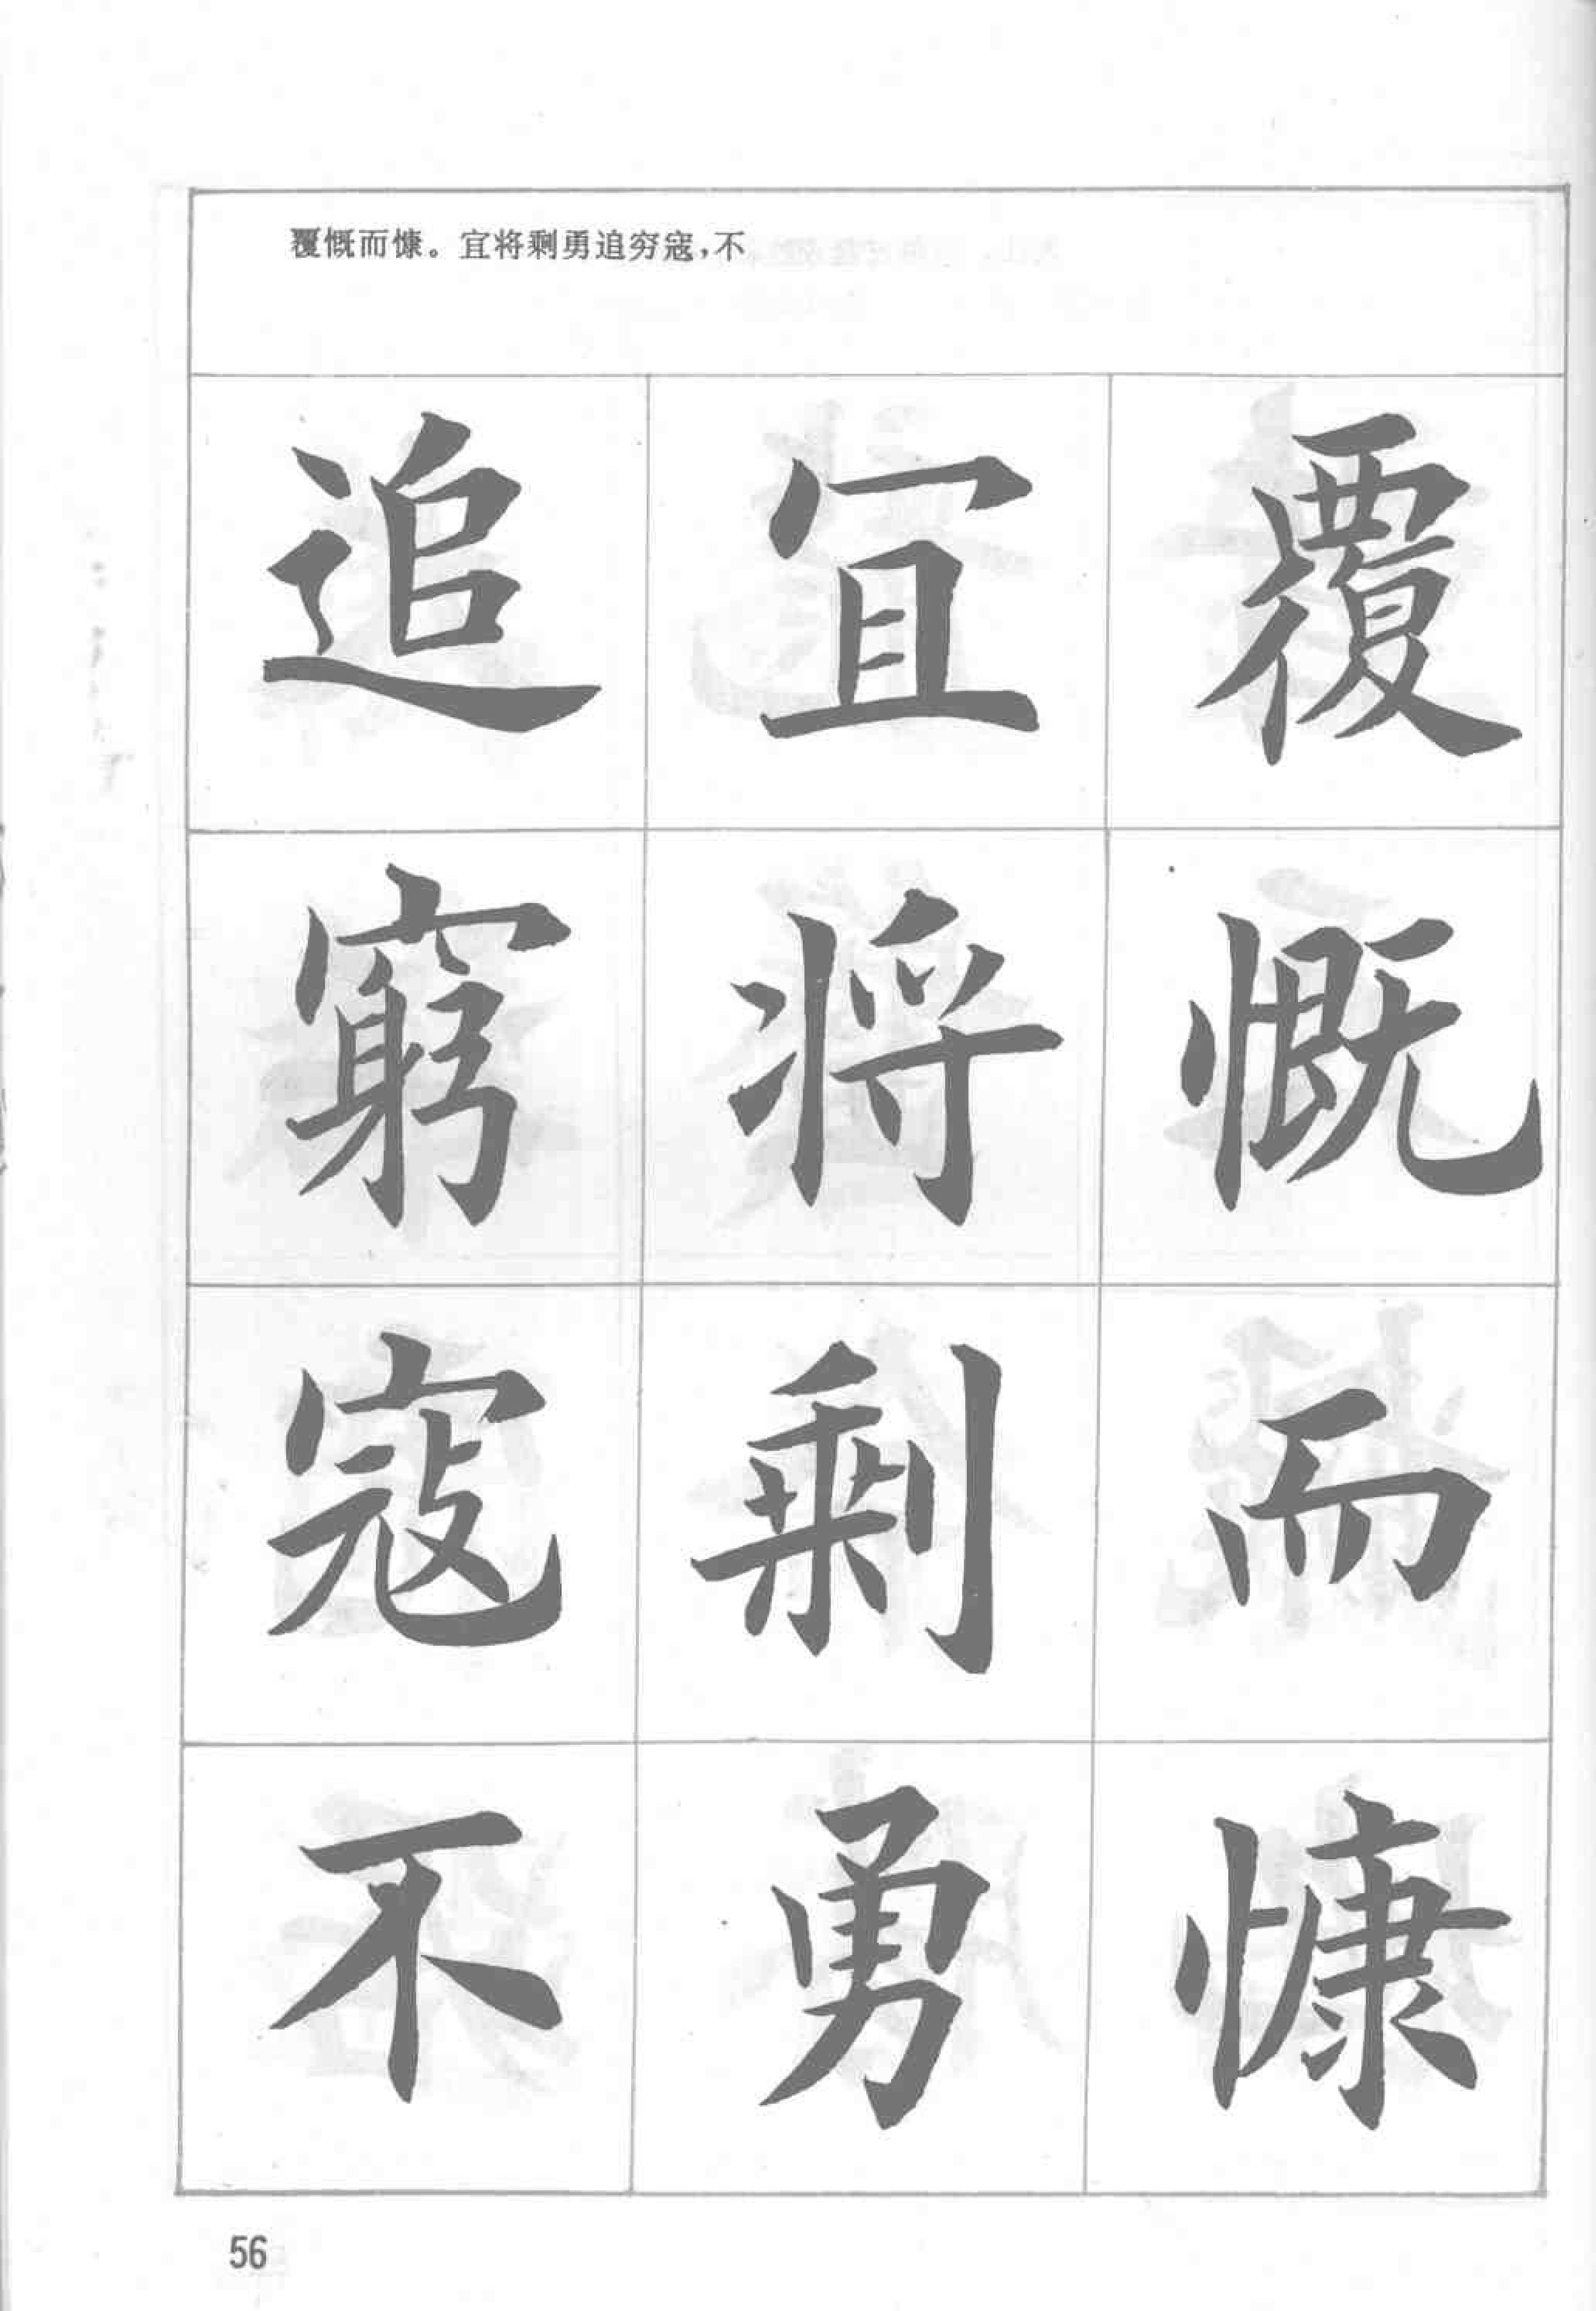 覆慨而慷。宜将剩勇追穷寇,不
覆慨而慷
宜将剩勇
追窮寇不
56